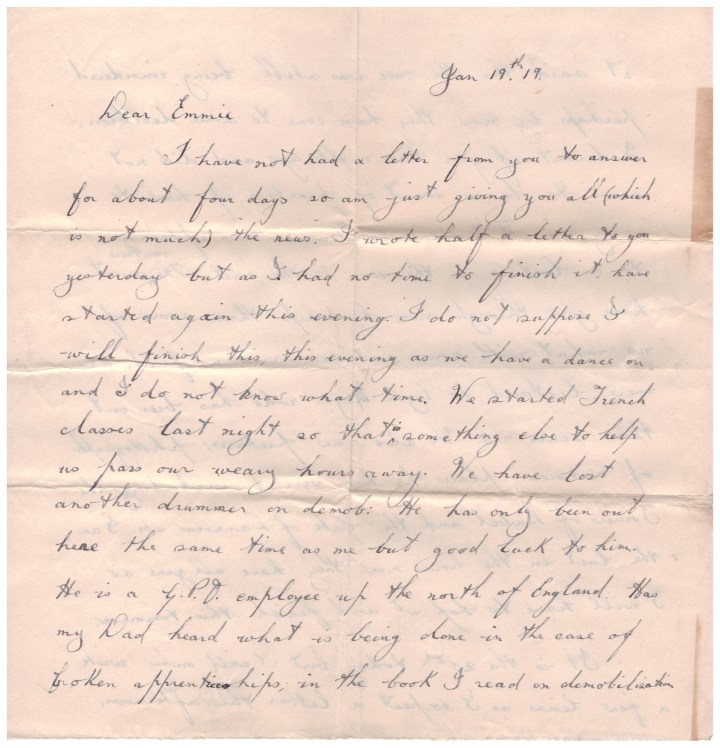 Jan 19.th 19.
Dear Emmie
I have not had a letter from you to answer
for about four days so am just giving you all (which
is not much) "the news". I wrote half a letter to you
yesterday but as I had no time to finish it, have
started again this evening. I do not suppose I
will finish this, this evening as we have a dance on
and I do not know what time. We started French
classes last night so that is something else to help
us pass our weary hours away. We have lost
another drummer on demob: He has only been out
here the same time as me but good luck to him.
He is a employee up the north of England. Has
my Dad heard what is being done in the case of
broken apprenticeships; in the book I read on demobilisation